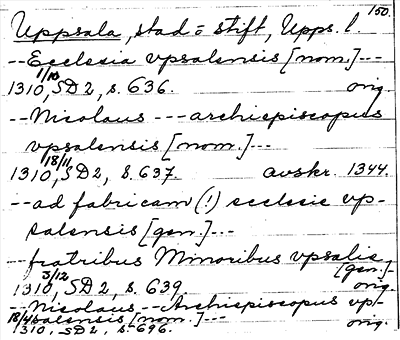 150.
Uppsala, stad o stift, Upps. l.
--Ecclesia vpsalensis [nom.]---
1310 1/10, SD2, s. 636. orig.
--Nicolaus---archiepiscopus
vpsalensis [nom.]---
1310 18/11, SD2, s. 637. avskr. 1344.
--ad fabricam (!) ecclesie vp-
salensis [gen.]---
--fratribus Minoribus vpsalie
[gen.]-
1310 3/12, SD2, s. 639. orig.
--Nicolaus--Archiepiscopus vp-
salensis [nom.]---
1310 18/4, SD2, s. 696. orig.